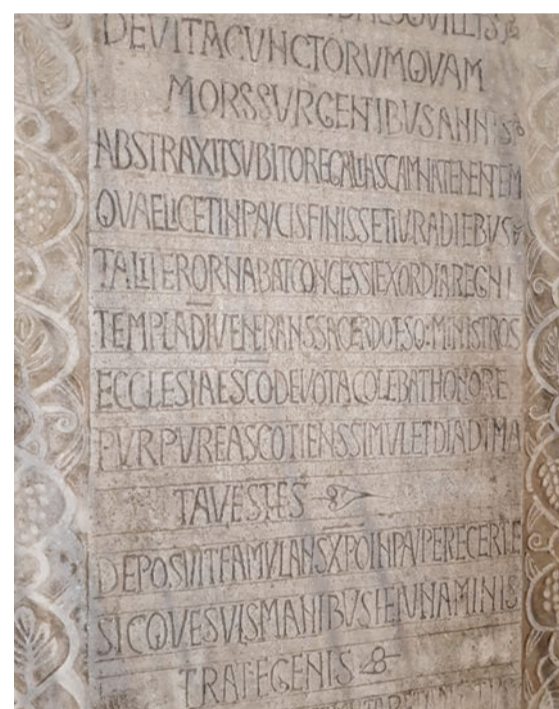 DEVITACVNCTORVMQVAM
MORSSVRGENTIBUSANNIS
ABSTRAXITSVBITOREGALIASCAMNATENENTEM
QVAELICETINPAVCISFINISSETIVRADIEBVS
TALITERORNABATCONCESSIEXORDIAREGNI
TEMPLADIVENERANSSACERDOTESQ:MINISTROS
ECCLESIAESCODEVOTACOLEBATHONORE
PVRPVREASCOTIENSSIMVLETDIADIMA
TAVESTES
DEPOSVITFAMVLANSXPOINPAVPERECERTE
SICQVESVISMANIBVSIEIVNAMINIS
TRATEGENIS